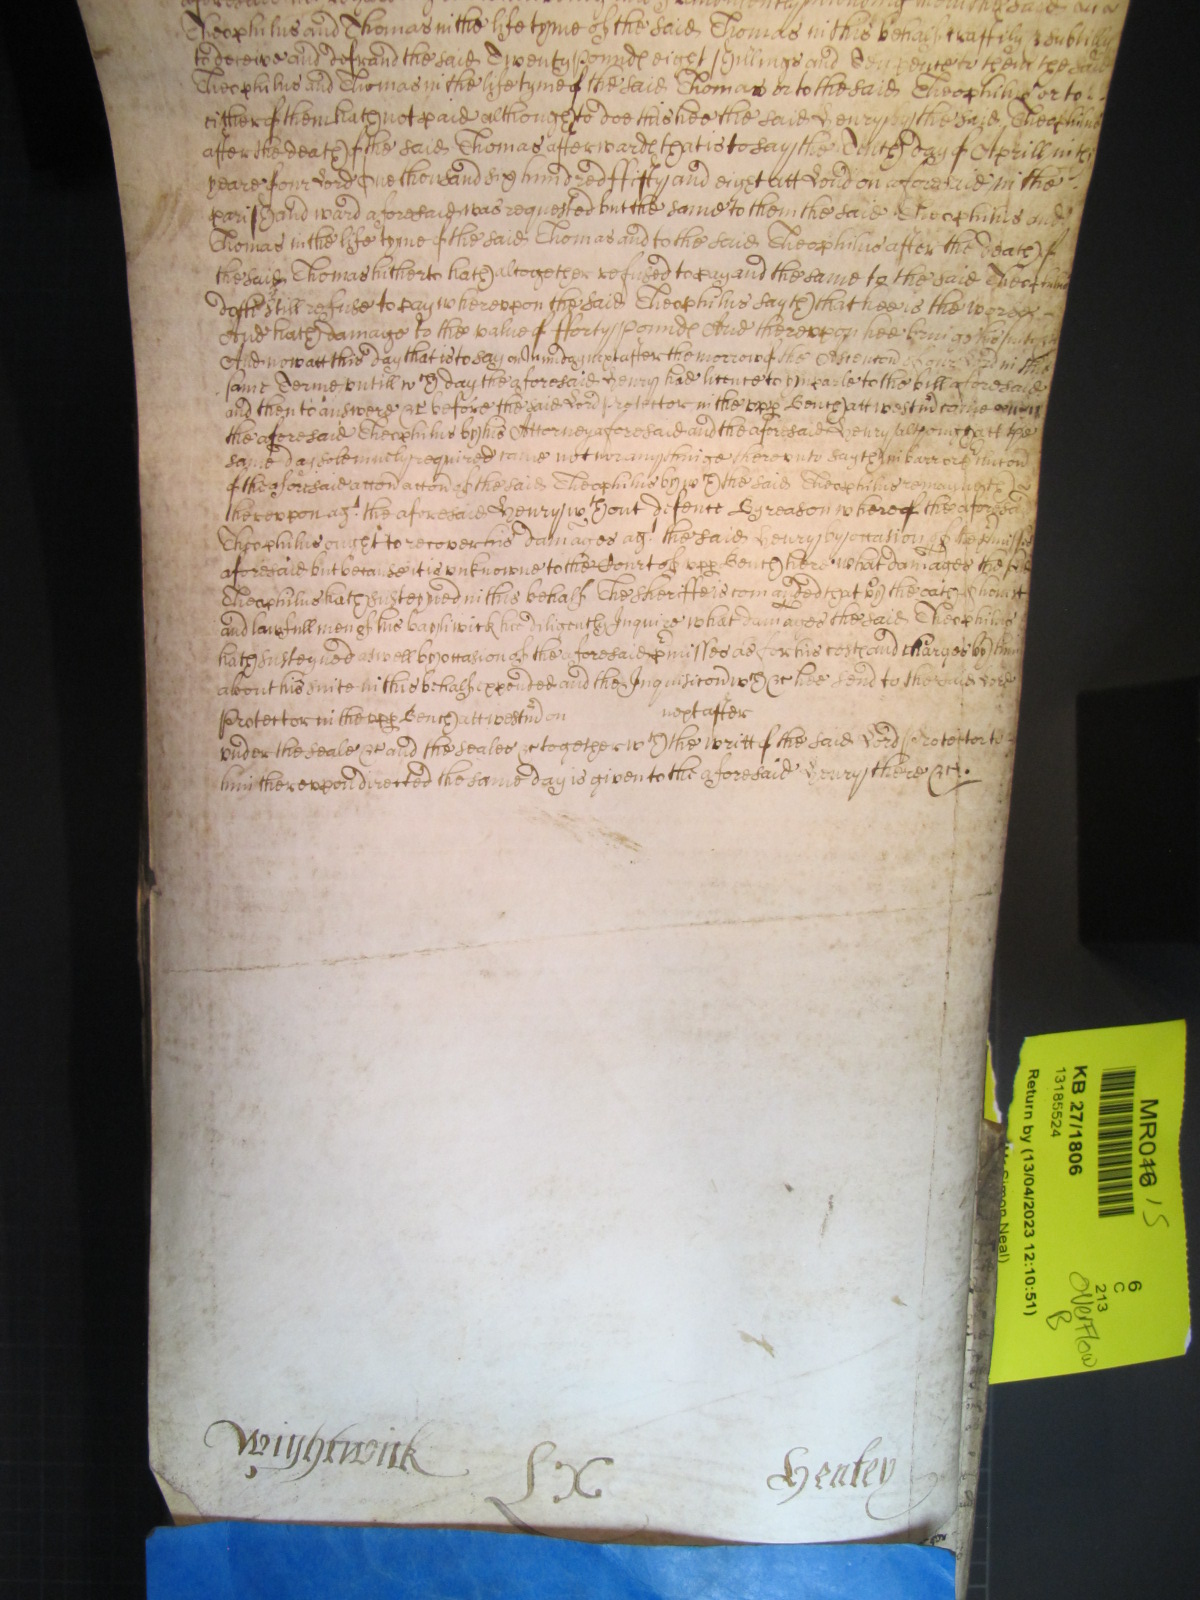 Theophilus and Thomas in the life tyme of the said Thomas in this behalf craftily & subtilly
to deceive and defraud the said Twenty pounds eight shillings and Six pence to them the said
Theophilus and Thomas in the life tyme of the said Thomas or to the said Theophilus or to
either of them hath not paid although to doe this hee the said Henry by the said Theophilus
after the death of the said Thomas afterwards that is to say the Tenth day of Aprill in the
yeare of our Lord One thousand six hundred ffifty and eight att London aforesaid in the
parish and ward aforesaid was requested but the same to them the said Theophilus and
Thomas in the life tyme of the said Thomas and to the said Theophilus after the death of
the said Thomas hitherto hath altogether refused to pay and the same to the said Theophilus
doth still refuse to pay whereupon the said Theophilus sayth that hee is the worse
And hath damage to the value of fforty pounds And thereupon hee brings his suite
And now att this day that is to say on munday next after the morrow of the Ascencon of our Lord in this
same Terme untill wch day the aforesaid Henry had licence to imparle to the bill aforesaid
and then to answere &c before the said Lord Protector in the upp Bench att westm came
the aforesaid Theophilus by his Attorney aforesaid and the aforesaid Henry although att the
same day solemnely required came not nor any thinge thereunto sayth in barr or
of the aforesaid accon of the said Theophilus by wch the said Theophilus remayneth
thereupon agt the aforesaid Henry wthout defence By reason whereof the aforesaid
Theophilus ought to recover his damages agt the said Henry by occasion of the pmisses
aforesaid but because it is unknowne to the Court of upp Bench here what damages the said
Theophilus hath susteyned in this behalf The sheriffe is comanded that by the oath of honest
and lawfull men of his bayliwick hee diligently Inquire what damages the said Theophilus
hath susteyned aswell by occasion of the aforesaid pmisses as for his costs and charges by him
about his suite in this behalf expended and the Inquisicon wch &c hee send to the said Lord
Protector in the upp Bench att westm on next after
under the seale &c and the seales &c together wth the writt of the said Lord Protector to
him thereupon directed the same day is given to the aforesaid Henry there &c.
Wightwick LX Henley
MR016 15
KB 27/1806
13185524
Return by (13/04/2023 12:10:51)
Simon Neal)
6
C
213
Overflow
B